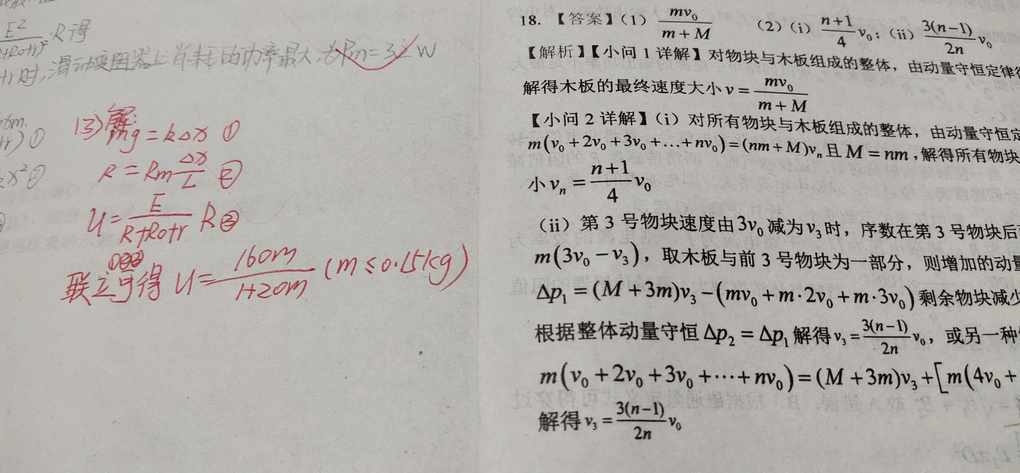 E²
·R得
+R0+r)²
+r时,滑动变阻器上消耗的功率最大,为Pm=3.2W
(3)解:mg=kΔx ①
R=Rm Δx/L ②
U=E/(R+R0+r) R③
联立①②③可得 U=160m/(1+20m) (m≤0.15kg)
18. 【答案】(1) mv₀/(m+M) (2)(i) (n+1)/4 v₀; (ii) 3(n-1)/2n v₀
【解析】【小问 1 详解】对物块与木板组成的整体,由动量守恒定律
解得木板的最终速度大小 v = mv₀/(m+M)
【小问 2 详解】(i)对所有物块与木板组成的整体,由动量守恒定
m(v₀+2v₀+3v₀+…+nv₀)=(nm+M)vₙ 且 M=nm,解得所有物块
小 vₙ = (n+1)/4 v₀
(ii)第 3 号物块速度由 3v₀ 减为 v₃ 时,序数在第 3 号物块后
m(3v₀-v₃),取木板与前 3 号物块为一部分,则增加的动量
Δp₁=(M+3m)v₃-(mv₀+m·2v₀+m·3v₀) 剩余物块减少
根据整体动量守恒 Δp₂=Δp₁ 解得 v₃=3(n-1)/2n v₀,或另一种
m(v₀+2v₀+3v₀+…+nv₀)=(M+3m)v₃+[m(4v₀+
解得 v₃=3(n-1)/2n v₀